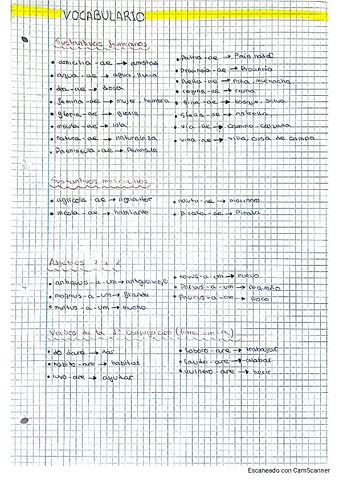 VOCABULARIO
Sustantivos femeninos
• amicitia-ae → amistad
• aqua-ae → agua, lluvia
• dea-ae → diosa
• femina-ae → mujer, hembra
• gloria-ae → gloria
• insula-ae → isla
• natura-ae → naturaleza
• Paeninsula-ae → Península
• Patria-ae → País natal
• Provincia-ae → Provincia
• Puella-ae → niña, muchacha
• regina-ae → reina
• silva-ae → bosque, selva
• stella-ae → estrella
• via-ae → camino, calzada
• villa-ae → villa, casa de campo
Sustantivos masculinos
• agricola-ae → agricultor
• incola-ae → habitante
• nauta-ae → marinero
• pirata-ae → Pirata
Adjetivos 1 y 2
• antiquus-a-um → antiguo
• magnus-a-um → grande
• multus-a-um → mucho
• novus-a-um → nuevo
• Parvus-a-um → pequeño
• Paucus-a-um → Poco
Verbos de la 1ª conjugación
• do dare → dar
• habito-are → habitar
• iuvo-are → ayudar
• laboro-are → trabajar
• laudo-are → alabar
• vulnero-are → herir
Escaneado con CamScanner